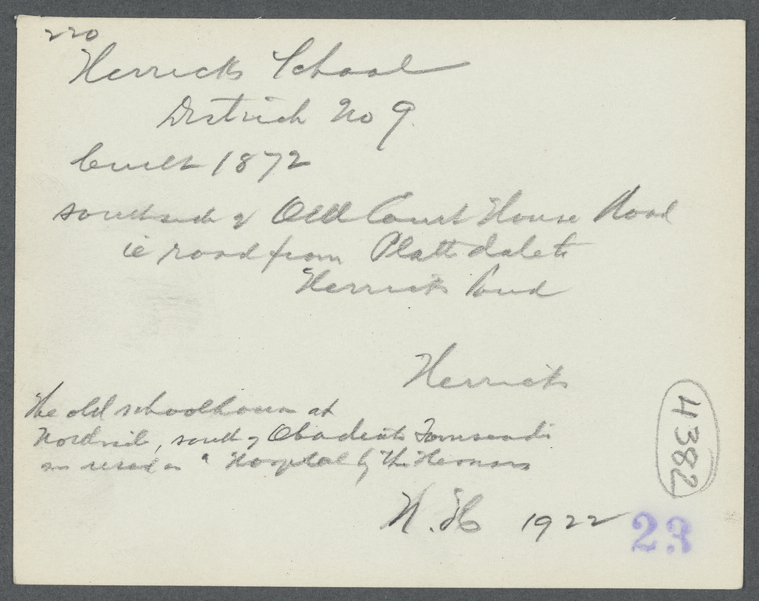 220
Herricks School
District No 9.
built 1872
south side of Old Court House Road
ie road from Plattsdale to
Herricks Pond
Herricks
The old schoolhouse at
Northside, south of Obadiah Townsends
was used as a Hospital by the Hessians
N. H. 1922
4382
23